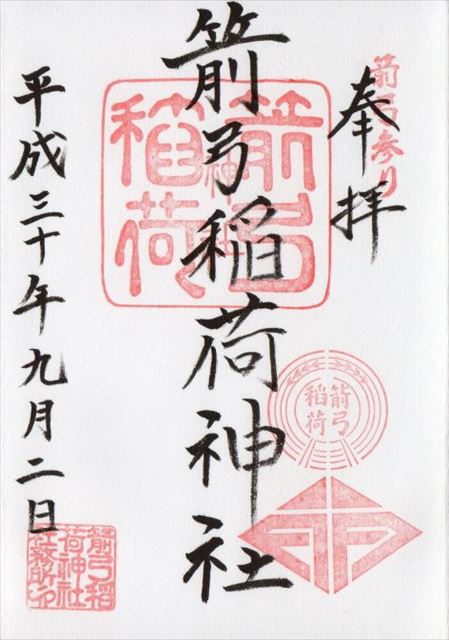 箭弓参り
奉拝
箭弓稲荷神社
平成三十年九月二日
箭弓
稲荷
箭弓
稲荷
箭弓稲
荷神社
社務所印